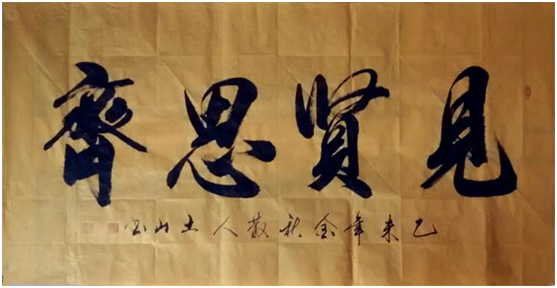 見賢思齊
乙未年金秋散人土山书